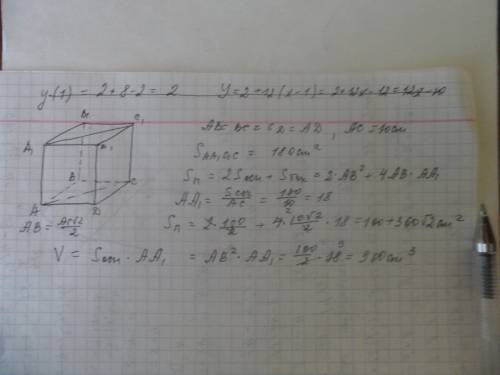 y(1) = 2+8-2 = 2 Y=2+12(x-1)=2+12x-12=12x-10
B₁ C₁
A₁ D₁
B C
A D
AB=BC=CD=AD, AC=10cm
S_AA₁C₁C = 180cm²
Sп = 2Sосн + Sбок = 2·AB² + 4AB·AA₁
AA₁ = Sсеч/AC = 180/10 = 18
AB = AC√2/2
Sп = 2·100/2 + 4·10√2/2·18 = 100+360√2cm²
V = Sосн·AA₁ = AB²·AA₁ = 100/2·18 = 900cm³